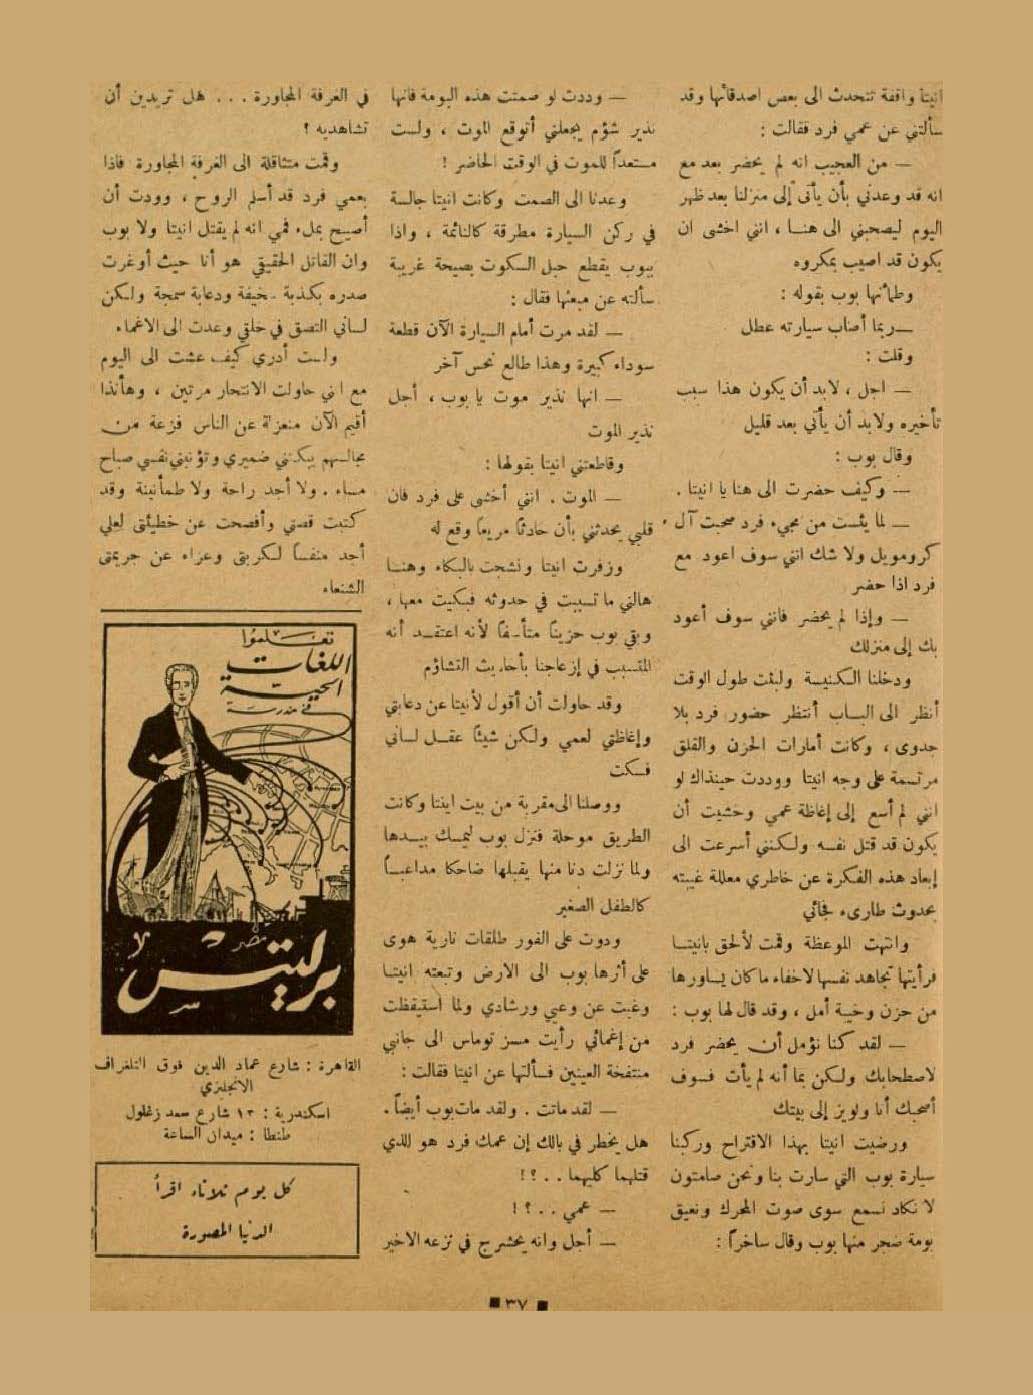 انيتا واقفة تتحدث الى بعض اصدقائها وقد
سألتني عن عمي فرد فقالت :
— من العجيب انه لم يحضر بعد مع
انه قد وعدني بأن يأتى إلى منزلنا بعد ظهر
اليوم ليصحبني الى هنا ، انني اخشى ان
يكون قد اصيب بمكروه
وطمأنها بوب بقوله :
— ربما أصاب سيارته عطل
وقلت :
— اجل ، لابد أن يكون هذا سبب
تأخيره ولابد أن يأتي بعد قليل
وقال بوب :
— وكيف حضرت الى هنا يا انيتا .
— لما يئست من مجىء فرد صحبت آل
كرومويل ولا شك انني سوف اعود مع
فرد اذا حضر
— وإذا لم يحضر فانني سوف أعود
بك إلى منزلك
ودخلنا الكنيسة ولبثت طول الوقت
أنظر الى الباب أنتظر حضور فرد بلا
جدوى ، وكانت أمارات الحزن والقلق
مرتسمة على وجه انيتا ووددت حينذاك لو
انني لم أسع إلى إغاظة عمي وخشيت أن
يكون قد قتل نفسه ولكنني أسرعت الى
إبعاد هذه الفكرة عن خاطري معللة غيبته
بحدوث طارىء فجائي
وانتهت الموعظة وقمت لألحق بانيتا
فرأيتها تجاهد نفسها لاخفاء ما كان يساورها
من حزن وخيبة أمل ، وقد قال لها بوب :
— لقد كنا نؤمل أن يحضر فرد
لاصطحابك ولكن بما أنه لم يأت فسوف
أصحبك أنا ولويز إلى بيتك
ورضيت انيتا بهذا الاقتراح وركبنا
سيارة بوب التي سارت بنا ونحن صامتون
لا نكاد نسمع سوى صوت المحرك ونعيق
بومة ضجر منها بوب وقال ساخراً :
— وددت لو صمتت هذه البومة فانها
نذير شؤم يجعلني أتوقع الموت ، ولست
مستعداً للموت في الوقت الحاضر !
وعدنا الى الصمت وكانت انيتا جالسة
في ركن السيارة مطرقة كالنائمة ، واذا
ببوب يقطع حبل السكوت بصيحة غريبة
سألته عن مبعثها فقال :
— لقد مرت أمام السيارة الآن قطعة
سوداء كبيرة وهذا طالع نحس آخر
— انها نذير موت يا بوب ، أجل
نذير الموت
وقاطعتني انيتا بقولها :
— الموت . انني أخشى على فرد فان
قلبي يحدثني بأن حادثا مريعا وقع له
وزفرت انيتا ونشجت بالبكاء وهنا
هالني ما تسببت في حدوثه فبكيت معها ،
وبقي بوب حزيناً متأسفاً لأنه اعتقد أنه
المتسبب في إزعاجنا بأحاديث التشاؤم
وقد حاولت أن أقول لأنيتا عن دعابتي
وإغاظتي لعمي ولكن شيئاً عقل لساني
فسكت
ووصلنا الى مقربة من بيت اينتا وكانت
الطريق موحلة فنزل بوب ليمسك بيدها
ولما نزلت دنا منها يقبلها ضاحكا مداعبا
كالطفل الصغير
ودوت على الفور طلقات نارية هوى
على أثرها بوب الى الارض وتبعته انيتا
وغبت عن وعيي ورشادي ولما استيقظت
من إغمائي رأيت مسز توماس الى جانبي
منتفخة العينين فسألتها عن انيتا فقالت :
— لقد ماتت . ولقد مات بوب أيضاً .
هل يخطر في بالك إن عمك فرد هو للذي
قتلهما كليهما . . ؟ !
— عمي . . ؟ !
— أجل وانه يحشرج في نزعه الاخير
في الغرفة المجاورة . . . هل تريدين أن
تشاهديه ؟
وقمت متثاقلة الى الغرفة المجاورة فاذا
بعمي فرد قد أسلم الروح ، وودت أن
أصيح بملء فمي انه لم يقتل انيتا ولا بوب
وان القاتل الحقيقي هو أنا حيث أوغرت
صدره بكذبة سخيفة ودعابة سمجة ولكن
لساني التصق في حلقي وعدت الى الاغماء
ولست أدري كيف عشت الى اليوم
مع اني حاولت الانتحار مرتين ، وهأنذا
أقيم الآن منعزلة عن الناس فزعة من
مجالسهم يبكتني ضميري وتؤنبني نفسي صباح
مساء . ولا أجد راحة ولا طمأنينة وقد
كتبت قصتي وأفصحت عن خطيئتي لعلي
أجد منفساً لكربتى وعزاء عن جريمتى
الشنعاء
تعلموا
اللغات
الحية
في مدرسة
برليتس
القاهرة : شارع عماد الدين فوق التلغراف
الانجليزي
اسكندرية : ١٣ شارع سعد زغلول
طنطا : ميدان الساعة
كل يوم ثلاثاء اقرأ
الدنيا المصورة
٣٧